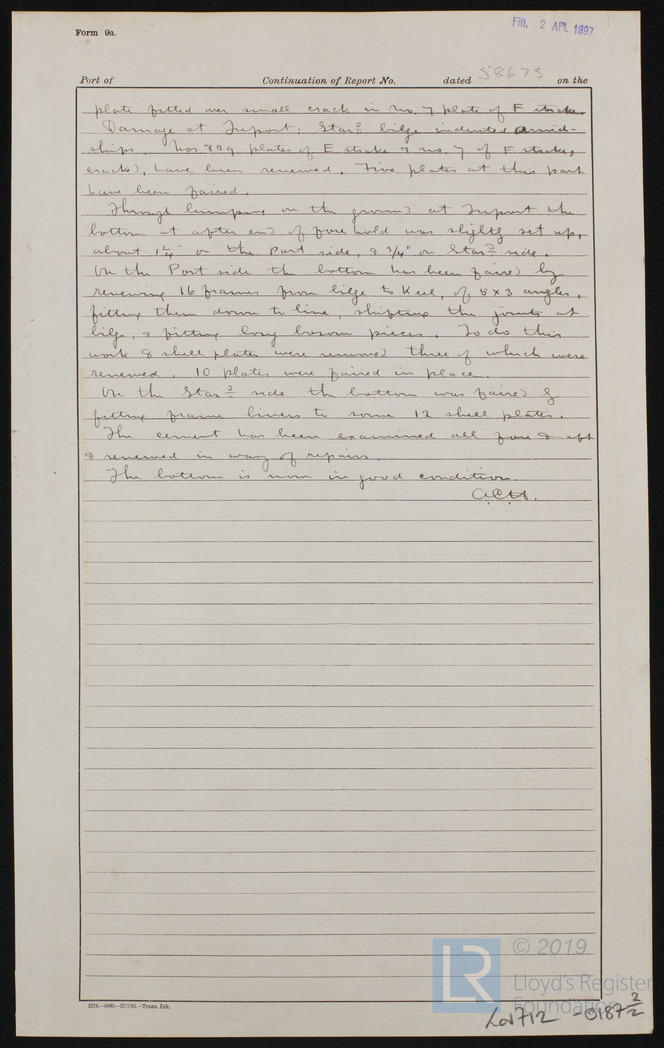 Form 9a.
FRI. 2 APL 1897
Port of Continuation of Report No. dated 58673 on the
plate fitted over small crack in No. 7 plate of F strake.
Damage at Tuport: Starᵈ bilge indented amid-
ships. Nos 8 & 9 plates of E strake & no. 7 of F strake,
cracked, have been renewed. Five plates at this part
have been faired.
Through bumping on the ground at Tuport the
bottom at after end of fore hold was slightly set up,
about 1¼" on the Port side, & ¾" on Starᵈ side.
On the Port side the bottom has been faired by
renewing 16 frames from bilge to Keel, of 5 x 3 angles,
fitting them down to line, shifting the joints at
bilge, & fitting long bosom pieces. To do this
work 8 shell plates were removed three of which were
renewed. 10 plates were faired in place.
On the Starᵈ side the bottom was faired by
fitting frame liners to some 12 shell plates.
The cement has been examined all fore & aft
& renewed in way of repairs.
The bottom is now in good condition.
A.C.H.
2274.—5000.—22/7/95.—Trans. Ink.
LR
© 2019
Lloyd's Register
Foundation
Lon712-0187 2/2